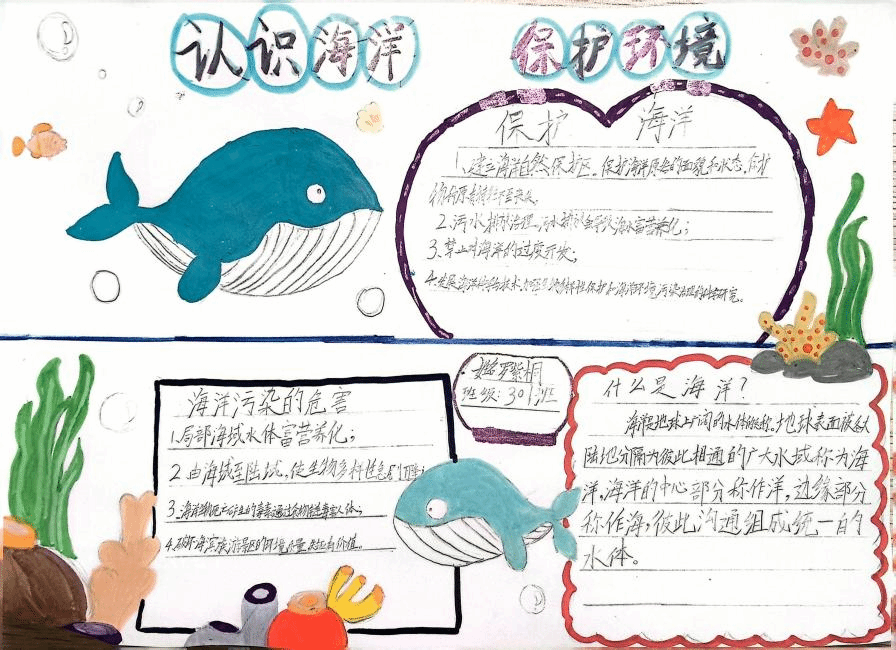 认识海洋 保护环境
保护 海洋
1.建立海洋自然保护区。保护海洋原始的面貌和状态,
2.污水排放治理,污水排放会导致海水富营养化;
3.禁止对海洋的过度开发;
4.发展海洋 技术,加 保护和海洋环境污染治理的科学研究。
姓名:罗紫桐
班级:301班
海洋污染的危害
1.局部海域水体富营养化;
2.由海域至陆域,使生物多样性急剧下降;
3.海洋 产生的毒素通过食物链毒害人体;
4.破坏海滨旅游景区的环境质量,失去 价值。
什么是海洋?
海洋是地球上广阔的水体的总称。地球表面被各大
陆地分隔为彼此相通的广大水域称为海
洋,海洋的中心部分称作洋,边缘部分
称作海,彼此沟通组成统一的
水体。